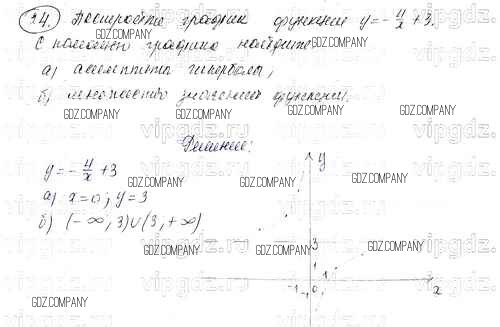 24. Постройте график функции y = -4/x + 3.
С помощью графика найдите
а) асимптоты гиперболы;
б) множество значений функции.
Решение:
y = -4/x + 3
а) x = 0; y = 3
б) (-∞, 3)∪(3, +∞)
y
3
1
-1 0 1
x
GDZ.COMPANY
GDZ.COMPANY
GDZ.COMPANY
GDZ.COMPANY
GDZ.COMPANY
GDZ.COMPANY
GDZ.COMPANY
GDZ.COMPANY
GDZ.COMPANY
GDZ.COMPANY
GDZ.COMPANY
GDZ.COMPANY
vipgdz.ru
vipgdz.ru
vipgdz.ru